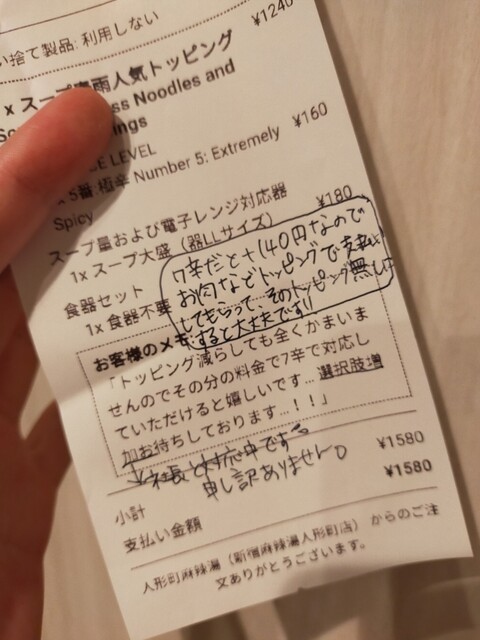 い捨て製品: 利用しない
¥1240
x スープ春雨人気トッピング
ss Noodles and
ings
E LEVEL
¥160
5番:極辛 Number 5: Extremely
Spicy
スープ量および電子レンジ対応器
¥180
1x スープ大盛（器LLサイズ）
食器セット
1x 食器不要
7辛だと+140円なので
お肉などトッピングで支払い
してもらって、そのトッピング無しに
すると大丈夫です!!
お客様のメモ:
「トッピング減らしても全くかまいま
せんのでその分の料金で7辛で対応し
ていただけると嬉しいです… 選択肢増
加お待ちしております…！！」
社長と対応中です
申し訳ありません。
小計
¥1580
支払い金額
¥1580
人形町麻辣湯（新宿麻辣湯人形町店）からのご注
文ありがとうございます。